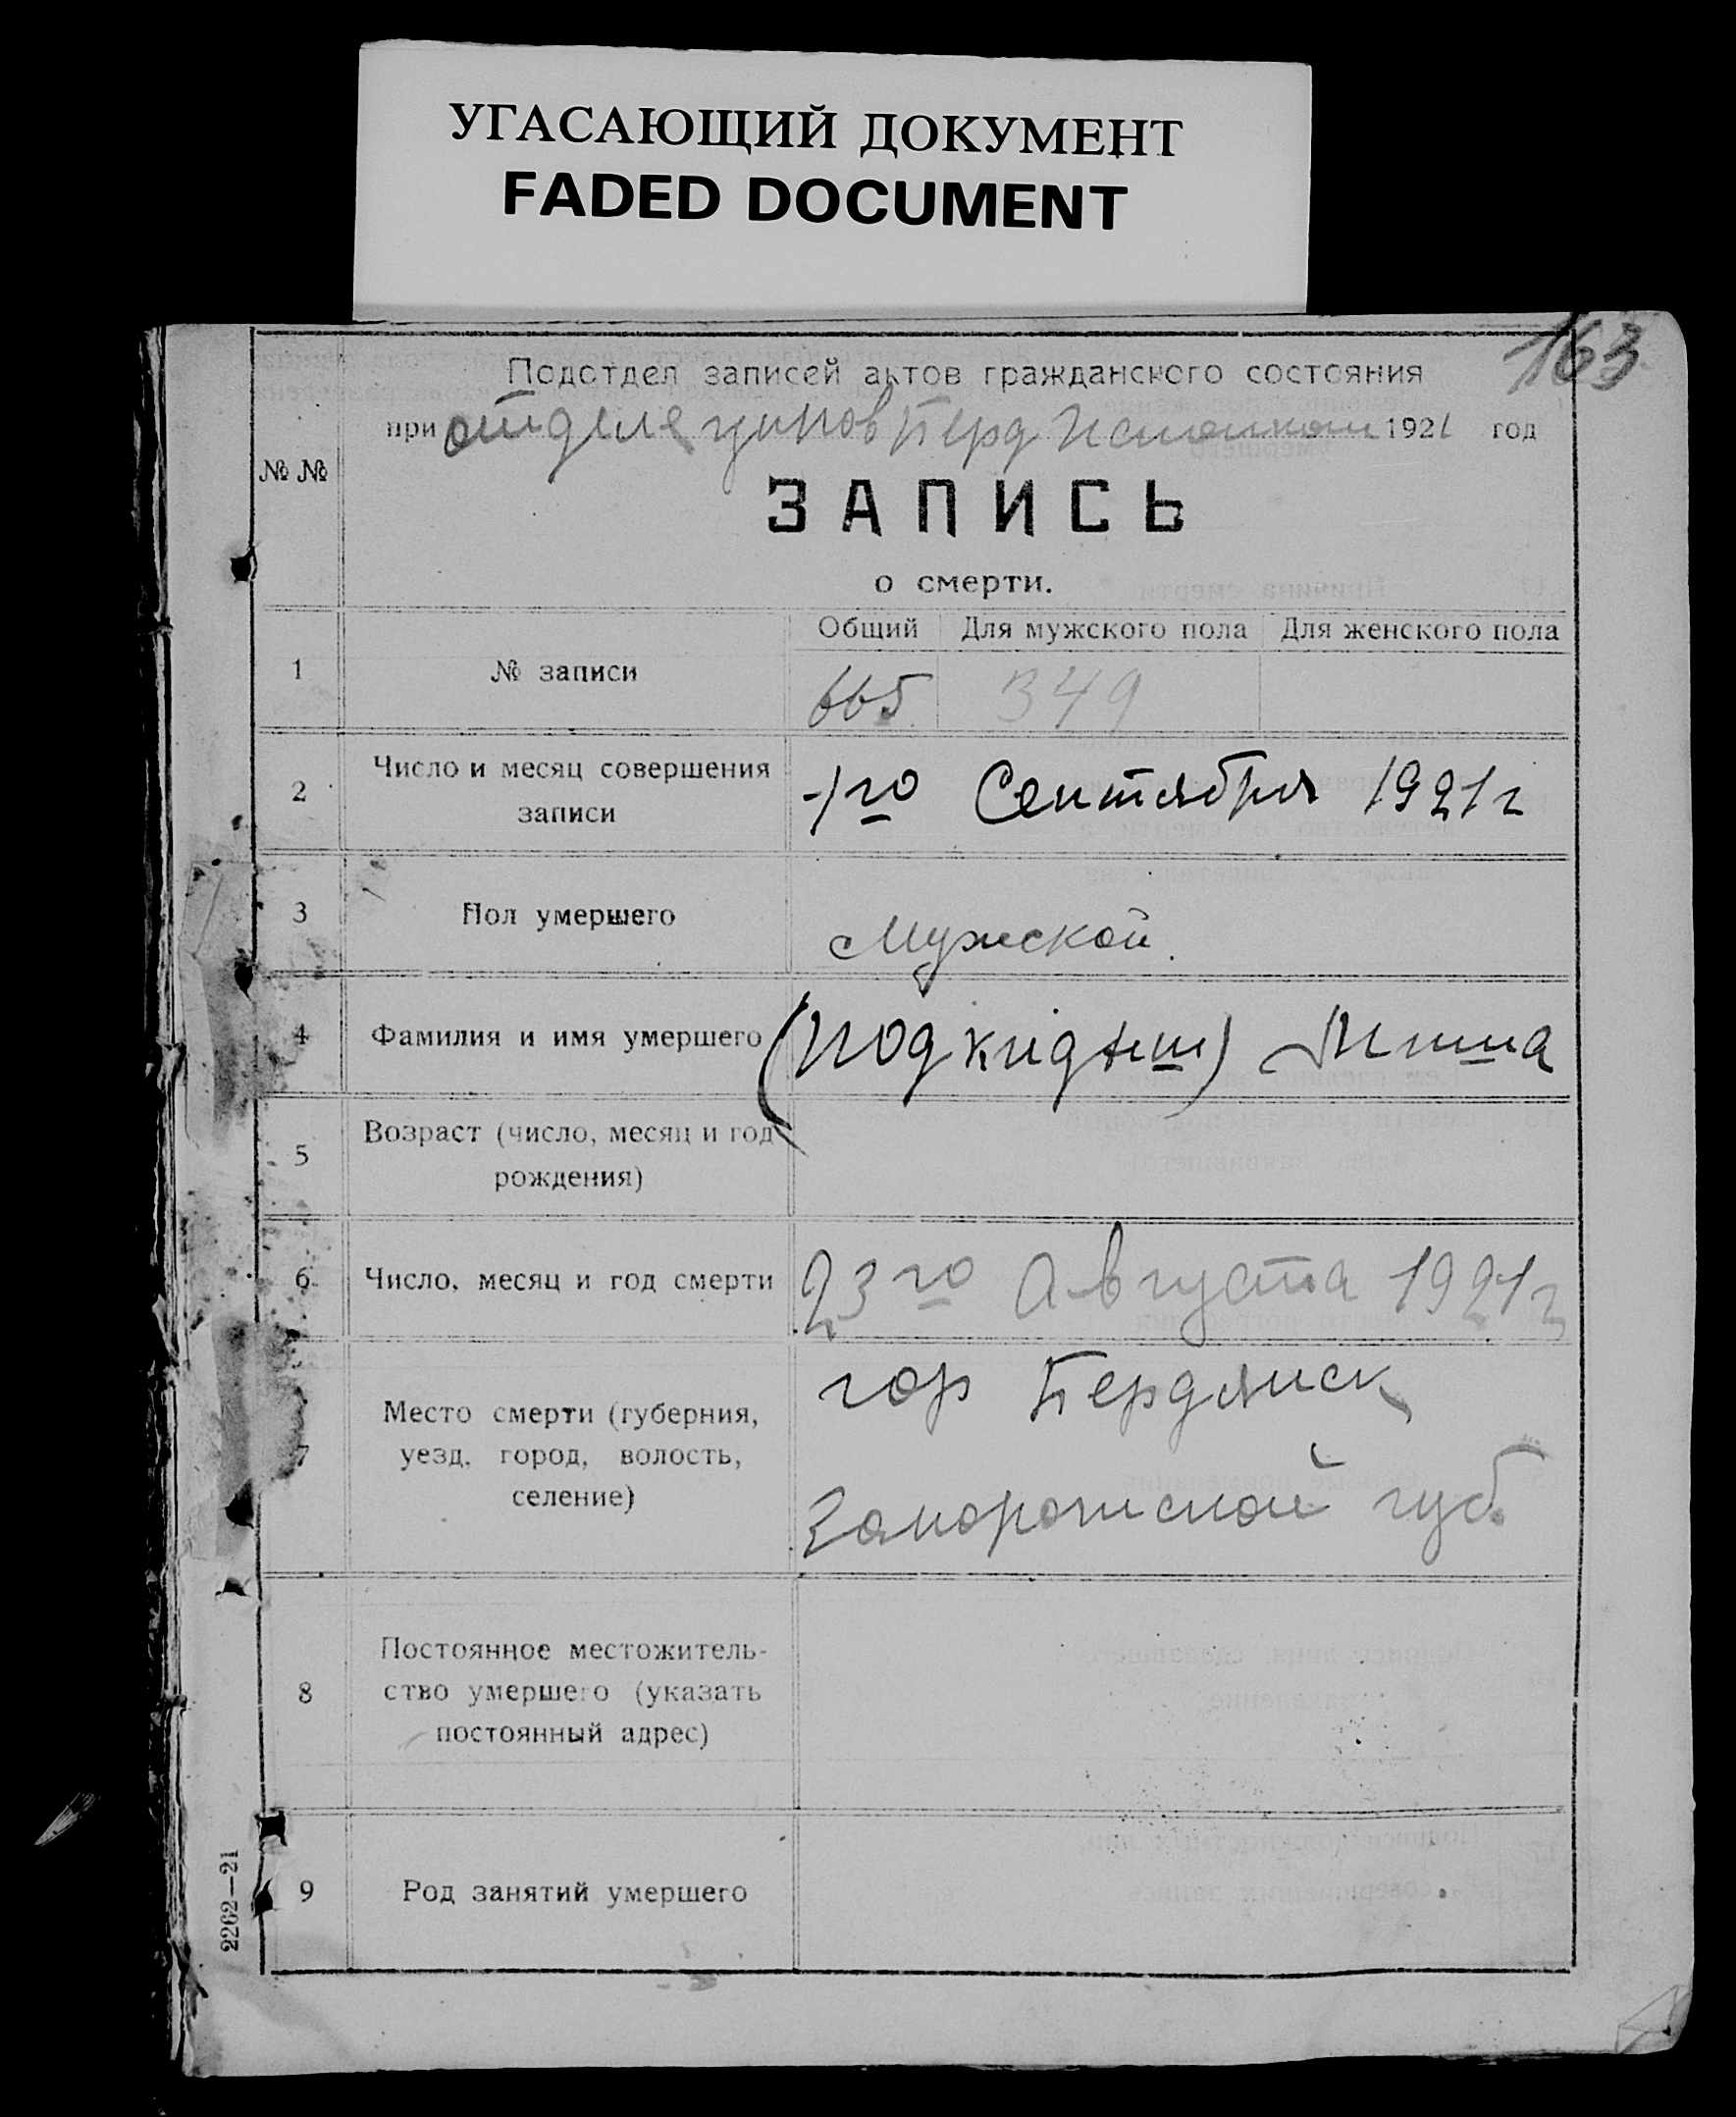 УГАСАЮЩИЙ ДОКУМЕНТ
FADED DOCUMENT
163
Подотдел записей актов гражданского состояния
при отделе Берд 1921 год
№ №
ЗАПИСЬ
о смерти.
Общий Для мужского пола Для женского пола
1 № записи 665 349
2 Число и месяц совершения
записи
1го Сентября 1921г
3 Пол умершего Мужской.
4 Фамилия и имя умершего (подкидыш) Миша
5 Возраст (число, месяц и год
рождения)
6 Число, месяц и год смерти 23го Августа 1921г
7 Место смерти (губерния,
уезд, город, волость,
селение)
гор Бердянск
Запорожской губ.
8 Постоянное местожитель-
ство умершего (указать
постоянный адрес)
9 Род занятий умершего
2262—21